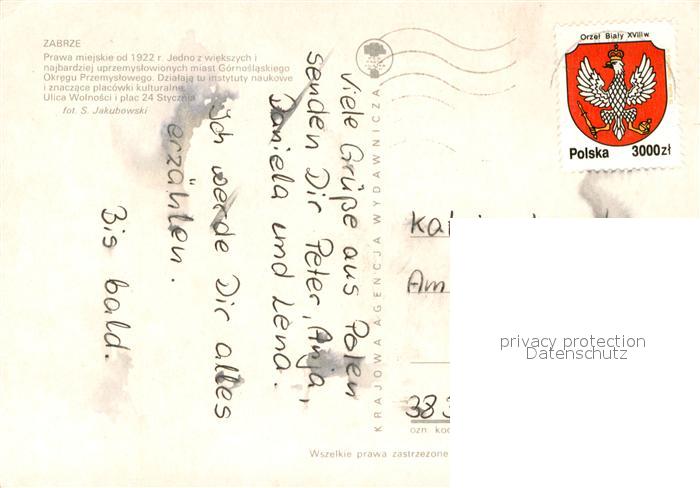 ZABRZE
Prawa miejskie od 1922 r. Jedno z większych i
najbardziej uprzemysłowionych miast Górnośląskiego
Okręgu Przemysłowego. Działają tu instytuty naukowe
i znaczące placówki kulturalne.
Ulica Wolności i plac 24 Stycznia
fot. S. Jakubowski
Viele Grüße aus Polen
senden Dir Peter, Anja,
Daniela und Lena.
Ich werde Dir alles
erzählen.
Bis bald.
KRAJOWA AGENCJA WYDAWNICZA
Orzeł Biały XVIII w.
Polska 3000 zł
Am
383
ozn. kod
Wszelkie prawa zastrzeżone
privacy protection
Datenschutz